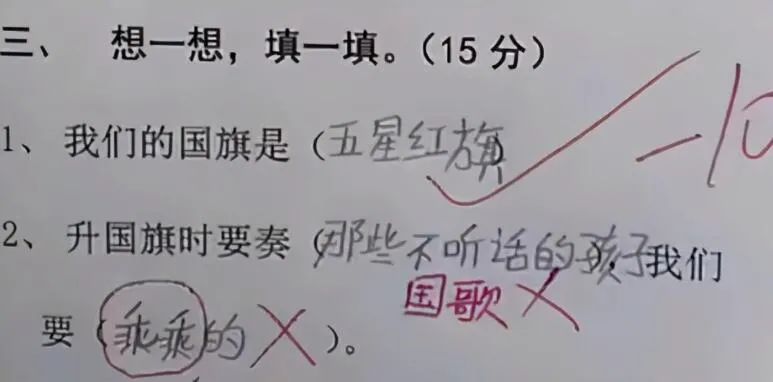 三、 想一想，填一填。（15 分）
1、我们的国旗是（五星红旗） -10
2、升国旗时要奏（那些不听话的孩子，我们
国歌
要（乖乖的）。